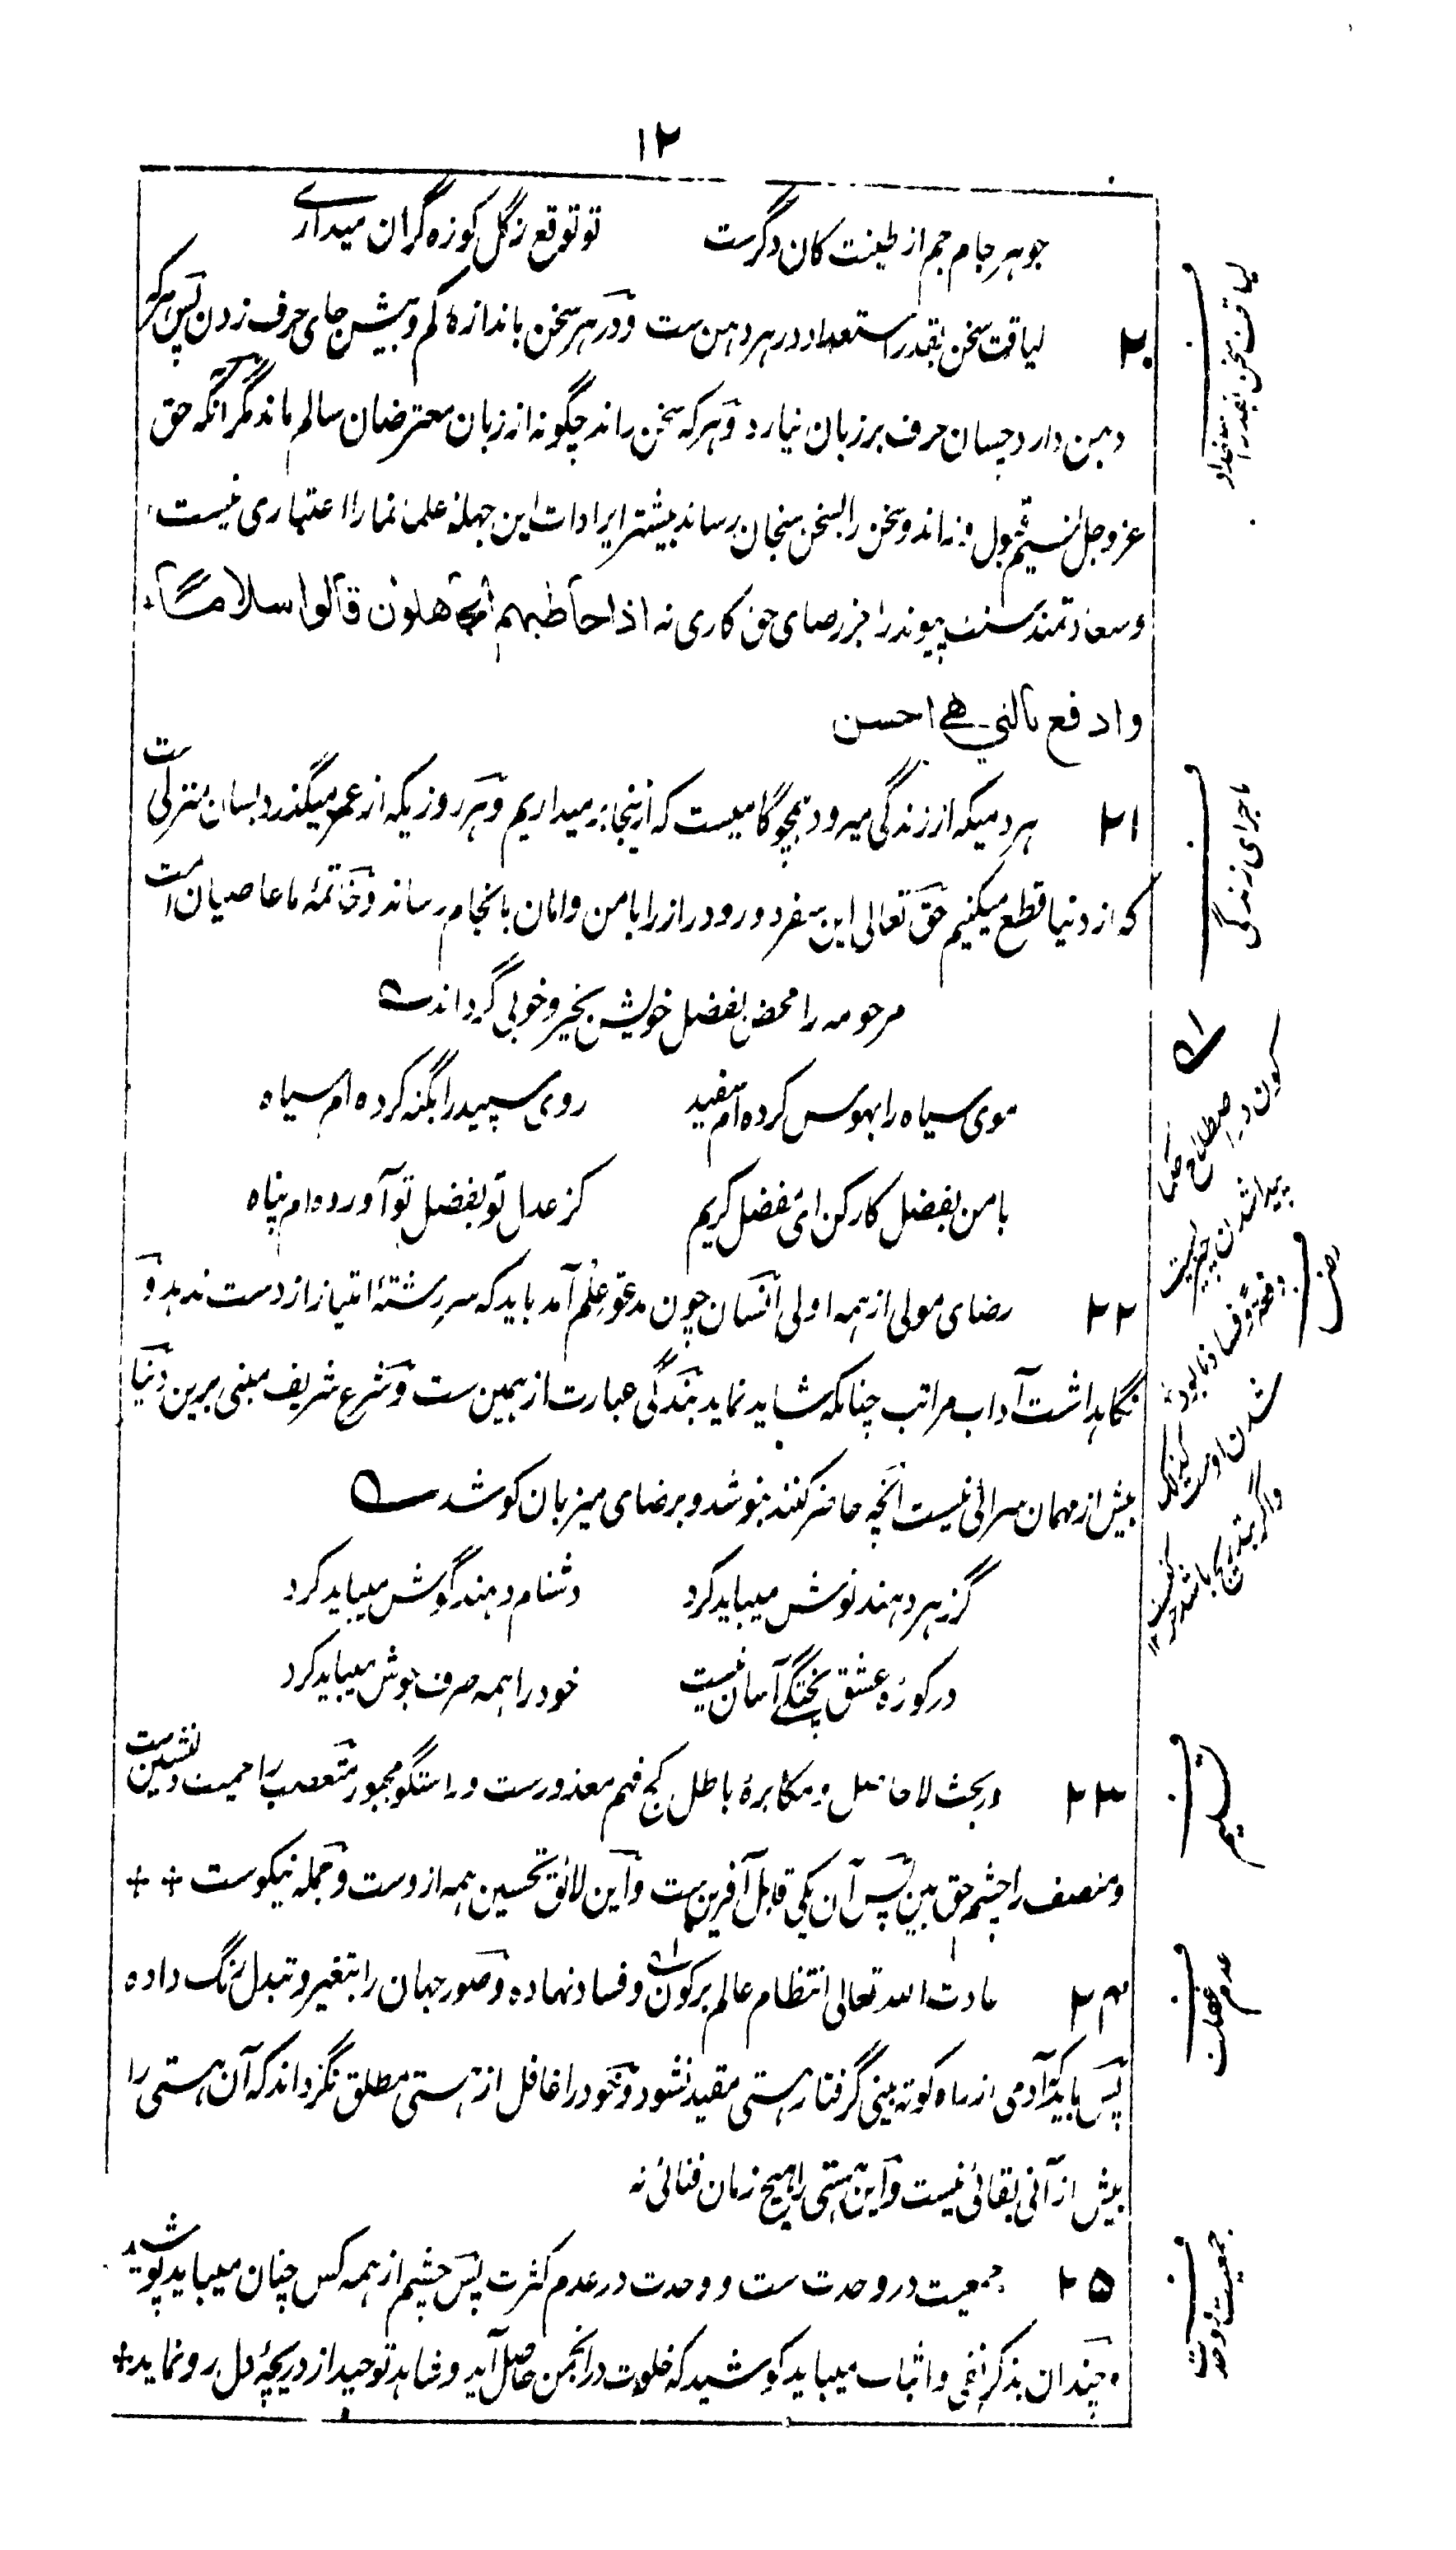 ۱۲
جوهر جام جم از طینت کان دگرست تو توقع ز گل کوزه گران میداری
۲۰ لیاقت سخن بقدر استعداد در هر دهن ست و در هر سخن باندازه کم و بیش جای حرف زدن پس هر که
دهن دارد چسان حرف بر زبان نیارد و هر که سخن راند چگونه از زبان معترضان سالم ماند مگر آنکه حق
عز و جل قبول و سخن را بسخن سنجان رساند بیشتر ایرادات این جهله علما نما را اعتباری نیست
و سعادتمند سنت پیوند را جز رضای حق کاری نه اذا خاطبهم الجاهلون قالوا سلاما
وادفع بالتي هي احسن
۲۱ هر دمیکه از زندگی میرود همچو گامیست که ازینجا بر میداریم و هر روزیکه از عمر میگذرد بسان منزلی ست
که از دنیا قطع میکنیم حق تعالی این سفر دور و دراز را با من و امان بانجام رساند و خاتمهٔ ما عاصیان امت
مرحومه را محض بفضل خویش بخیر و خوبی گرداند
موی سیاه را بهوس کرده ام سفید روی سپید را بگنه کرده ام سیاه
با من بفضل کار کن ای مفضل کریم کز عدل تو بفضل تو آورده ام پناه
۲۲ رضای مولی از همه اولی انسان چون مدعو علم آمد باید که سر رشتهٔ امتیاز از دست ندهد و
نگاهداشت آداب مراتب چنانکه شاید نماید بندگی عبارت از همین ست و شرع شریف مبنی برین دنیا
بیش از مهمان سرائی نیست آنچه حاضر کنند بنوشد و برضای میزبان کوشد
گر زهر دهند نوش میباید کرد دشنام دهند گوش میباید کرد
در کوره عشق پختگی آسان نیست خود را همه صرف جوش میباید کرد
۲۳ در بحث لا حاصل و مکابرهٔ باطل کج فهم معذورست و راستگو مجبور متعصب را حمیت دلنشین ست
و منصف را چشم حق بین پس آن یکی قابل آفرین ست و این لائق تحسین همه از وست و جمله نیکوست
۲۴ عادت الله تعالی انتظام عالم بر کون و فساد نهاده و صور جهان را بتغیر و تبدل رنگ داده
پس باید که آدمی از راه کوته بینی گرفتار هستی مقید نشود و خود را غافل از هستی مطلق نگرداند که آن هستی را
بیش از آنی بقائی نیست و این هستی را هیچ زمان فنائی نه
۲۵ جمعیت در وحدت ست و وحدت در عدم کثرت پس چشم از همه کس چنان میباید پوشید
و چندان بذکر نفی و اثبات میباید کوشید که خلوت در انجمن حاصل آید و شاهد توحید از دریچهٔ دل رو نماید
لیاقت سخن بقدر استعداد
ماجرای زندگی
کون در اصطلاح حکما
پیدا شدن چیزیست
دفعةً و فساد نابود
شدن اوست
و اگر بتدریج باشد
رضا
تسلیم
عدم غفلت
جمعیت در وحدت